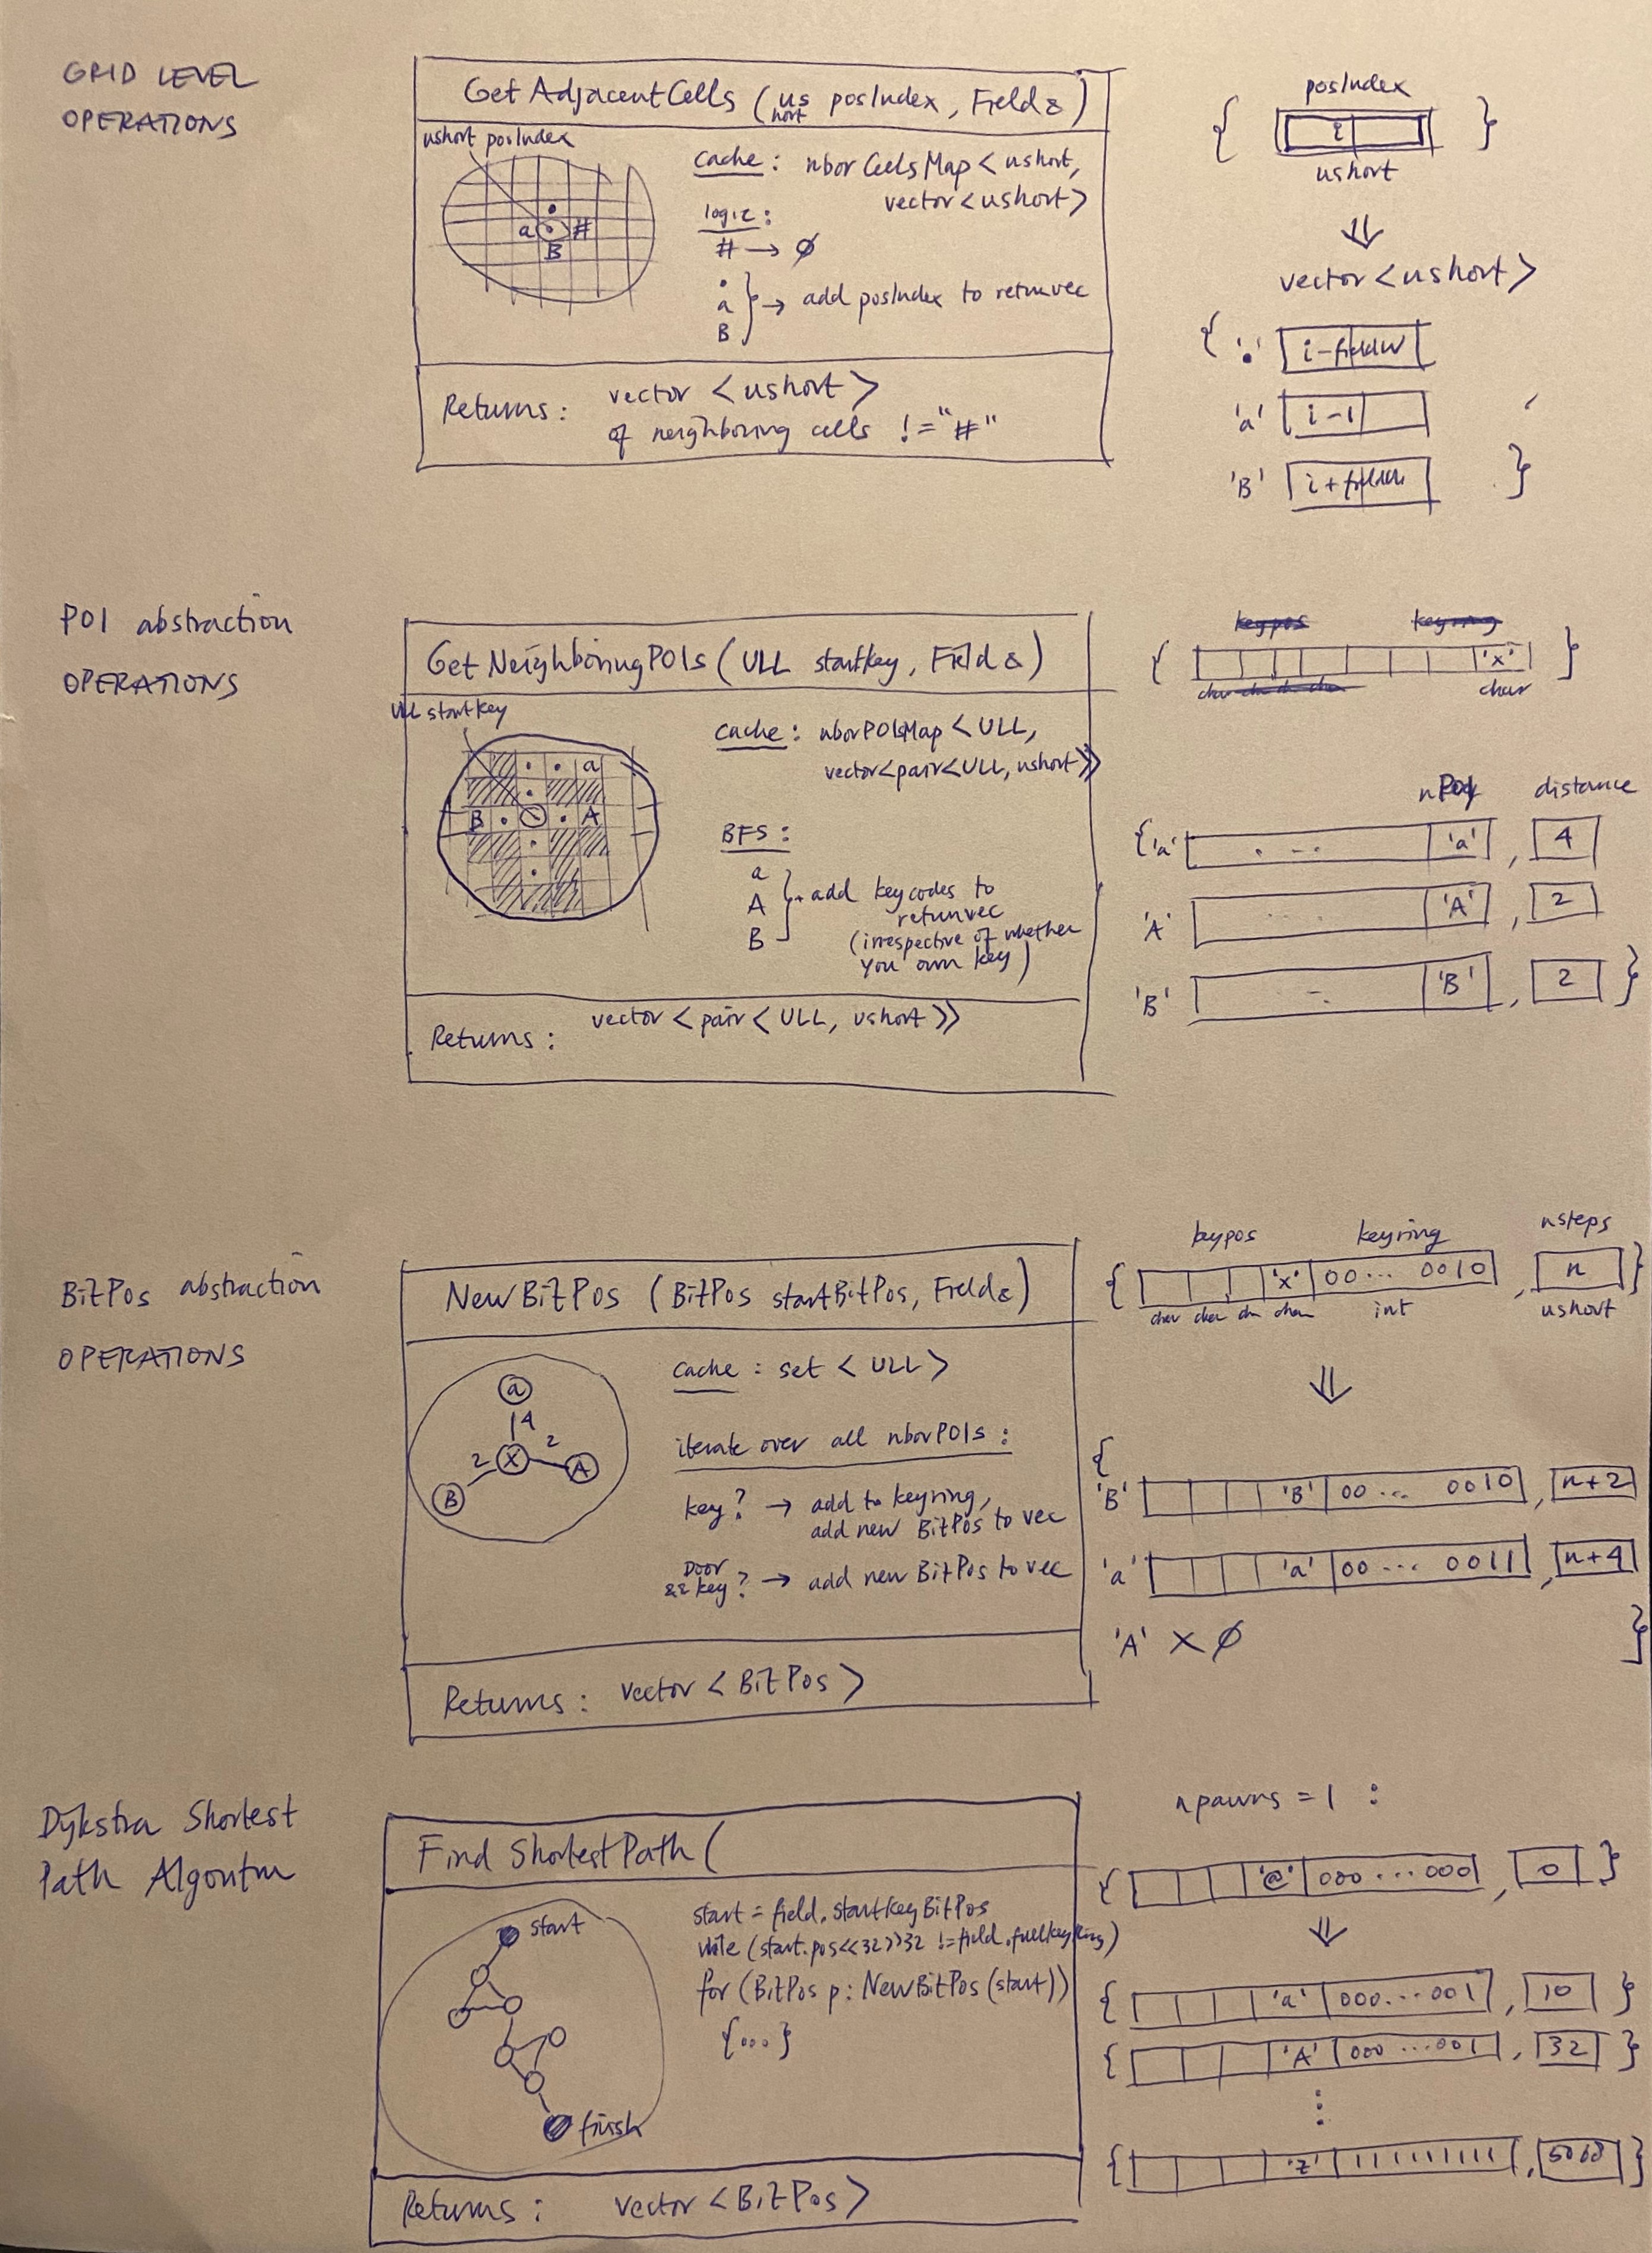 GRID LEVEL
OPERATIONS
GetAdjacentCells (ushort posIndex, Field&)
ushort posIndex
a #
B
cache: nborCellsMap<ushort,
vector<ushort>
logic:
# → ∅
.
a } → add posIndex to returnvec
B
Returns: vector <ushort>
of neighboring cells != "#"
posIndex
{ i }
ushort
⇓
vector<ushort>
{ '.' i-fieldW
'a' i-1
'B' }
POI abstraction
OPERATIONS
GetNeighboringPOIs (ULL startkey, Field&)
ULL startkey
a
B A
cache: nborPOIsMap<ULL,
vector<pair<ULL, ushort>>
BFS:
a
A } → add keycodes to
returnvec
B (irrespective of whether
you own key)
Returns: vector<pair<ULL, ushort>>
keypos keyring
{ 'x' }
char char char char char
distance
{ 'a' . -.. 'a' , 4
'A' ... 'A' , 2
'B' -. 'B' , 2 }
BitPos abstraction
OPERATIONS
NewBitPos (BitPos startBitPos, Field&)
a
4
2 X 2
B A
cache: set <ULL>
iterate over all nborPOIs:
key? → add to keyring,
add new BitPos to vec
Door
&& key? → add new BitPos to vec
Returns: vector <BitPos>
keypos keyring nsteps
{ 'x' 00... 0010 , n }
char char char char int ushort
⇓
{
'B' 'B' 00... 0010 , n+2
'a' 'a' 00... 0011 , n+4
'A' X ∅ }
Dijkstra Shortest
Path Algoritm
Find ShortestPath(
start
finish
start = field.startkeyBitPos
while (start.pos<<32>>32 != field.fullkeyRing)
for (BitPos p: NewBitPos(start))
{...}
Returns: vector <BitPos>
npawns = 1 :
{ '@' 000...000 , 0 }
⇓
{ 'a' 000...001 , 10 }
{ 'A' 000...001 , 32 }
⋮
{ 'z' 1111111111 , }